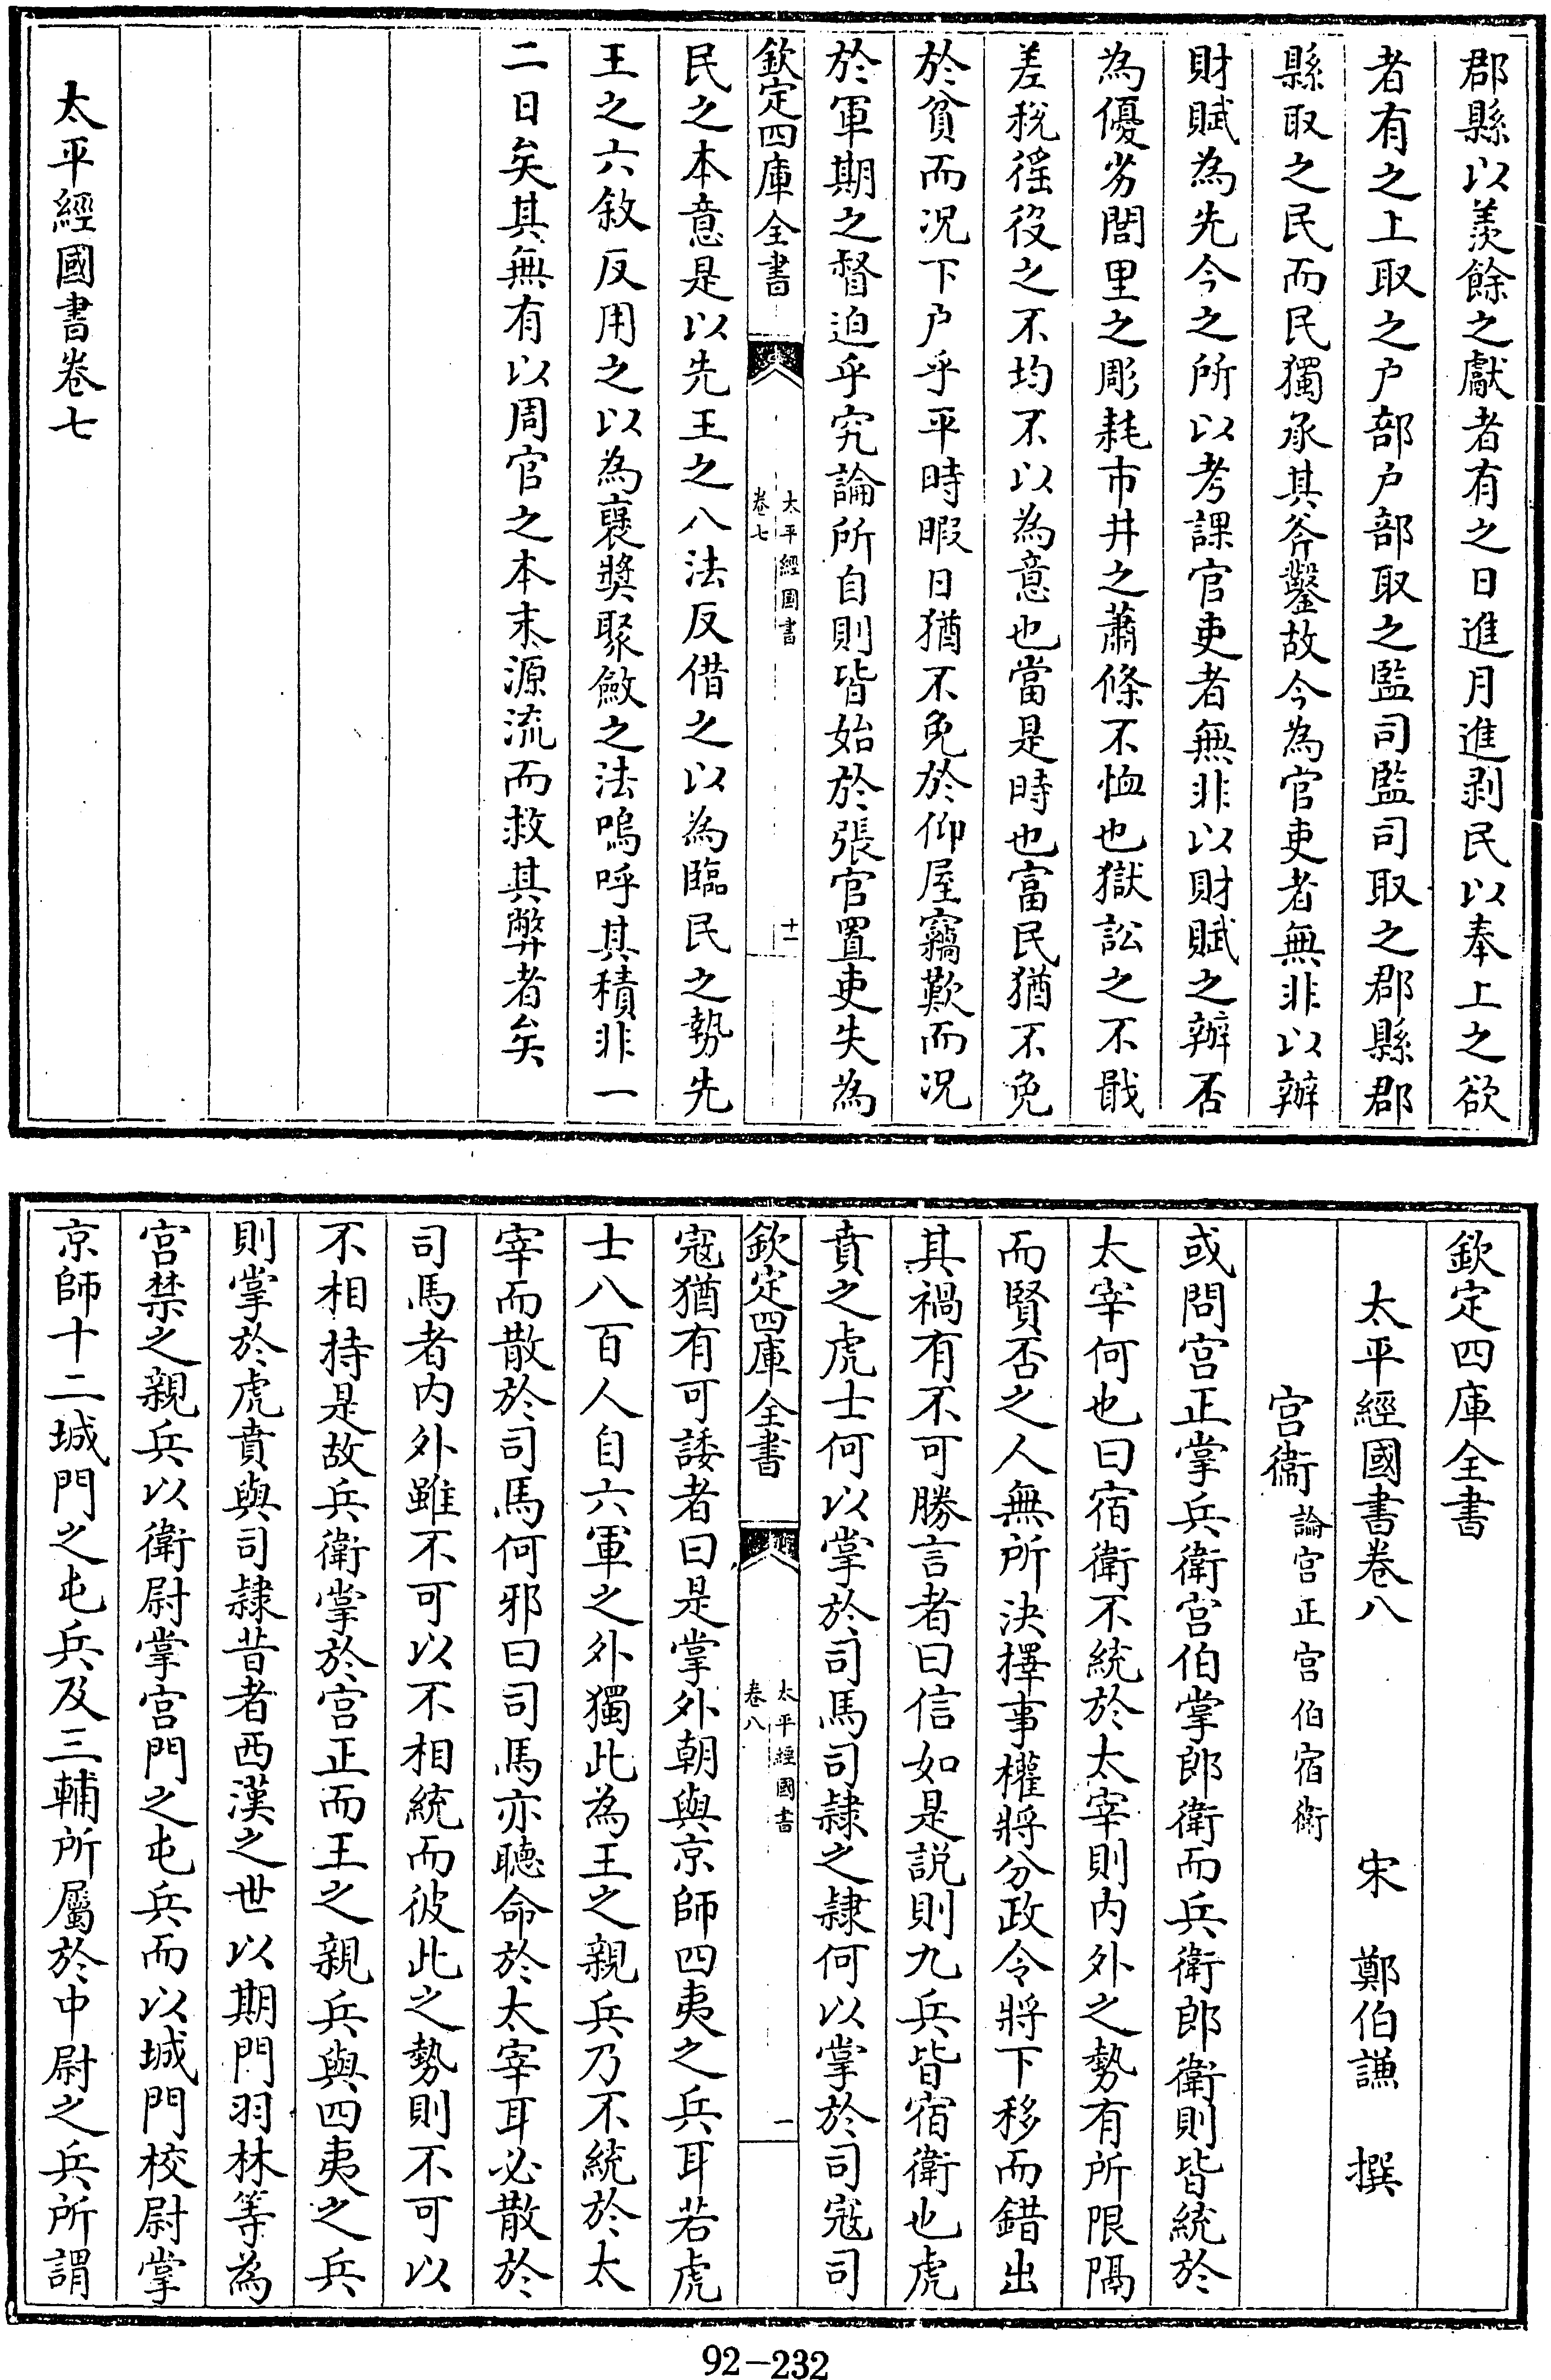 郡縣以羨餘之獻者有之日進月進剥民以奉上之欲
者有之上取之户部户部取之監司監司取之郡縣郡
縣取之民而民獨承其斧鑿故今為官吏者無非以辦
財賦為先今之所以考課官吏者無非以財賦之辦否
為優劣閭里之彫耗市井之蕭條不恤也獄訟之不戢
差税徭役之不均不以為意也當是時也富民猶不免
於貧而况下户乎平時暇日猶不免於仰屋竊歎而况
於軍期之督迫乎究論所自則皆始於張官置吏失為
欽定四庫全書
太平經國書
卷七
十一
民之本意是以先王之八法反借之以為臨民之勢先
王之六敘反用之以為襃奬聚斂之法嗚呼其積非一
二日矣其無有以周官之本末源流而救其弊者矣
太平經國書卷七
欽定四庫全書
太平經國書卷八
宋 鄭伯謙 撰
宫衞論宫正宫伯宿衛
或問宫正掌兵衛宫伯掌郎衛而兵衛郎衛則皆統於
太宰何也曰宿衛不統於太宰則内外之勢有所限隔
而賢否之人無所決擇事權將分政令將下移而錯出
其禍有不可勝言者曰信如是説則九兵皆宿衛也虎
賁之虎士何以掌於司馬司隷之隷何以掌於司寇司
欽定四庫全書
太平經國書
卷八
一
寇猶有可諉者曰是掌外朝與京師四夷之兵耳若虎
士八百人自六軍之外獨此為王之親兵乃不統於太
宰而散於司馬何邪曰司馬亦聽命於太宰耳必散於
司馬者内外雖不可以不相統而彼此之勢則不可以
不相持是故兵衛掌於宫正而王之親兵與四夷之兵
則掌於虎賁與司隷昔者西漢之世以期門羽林等為
宫禁之親兵以衛尉掌宫門之屯兵而以城門校尉掌
京師十二城門之屯兵及三輔所屬於中尉之兵所謂
92-232